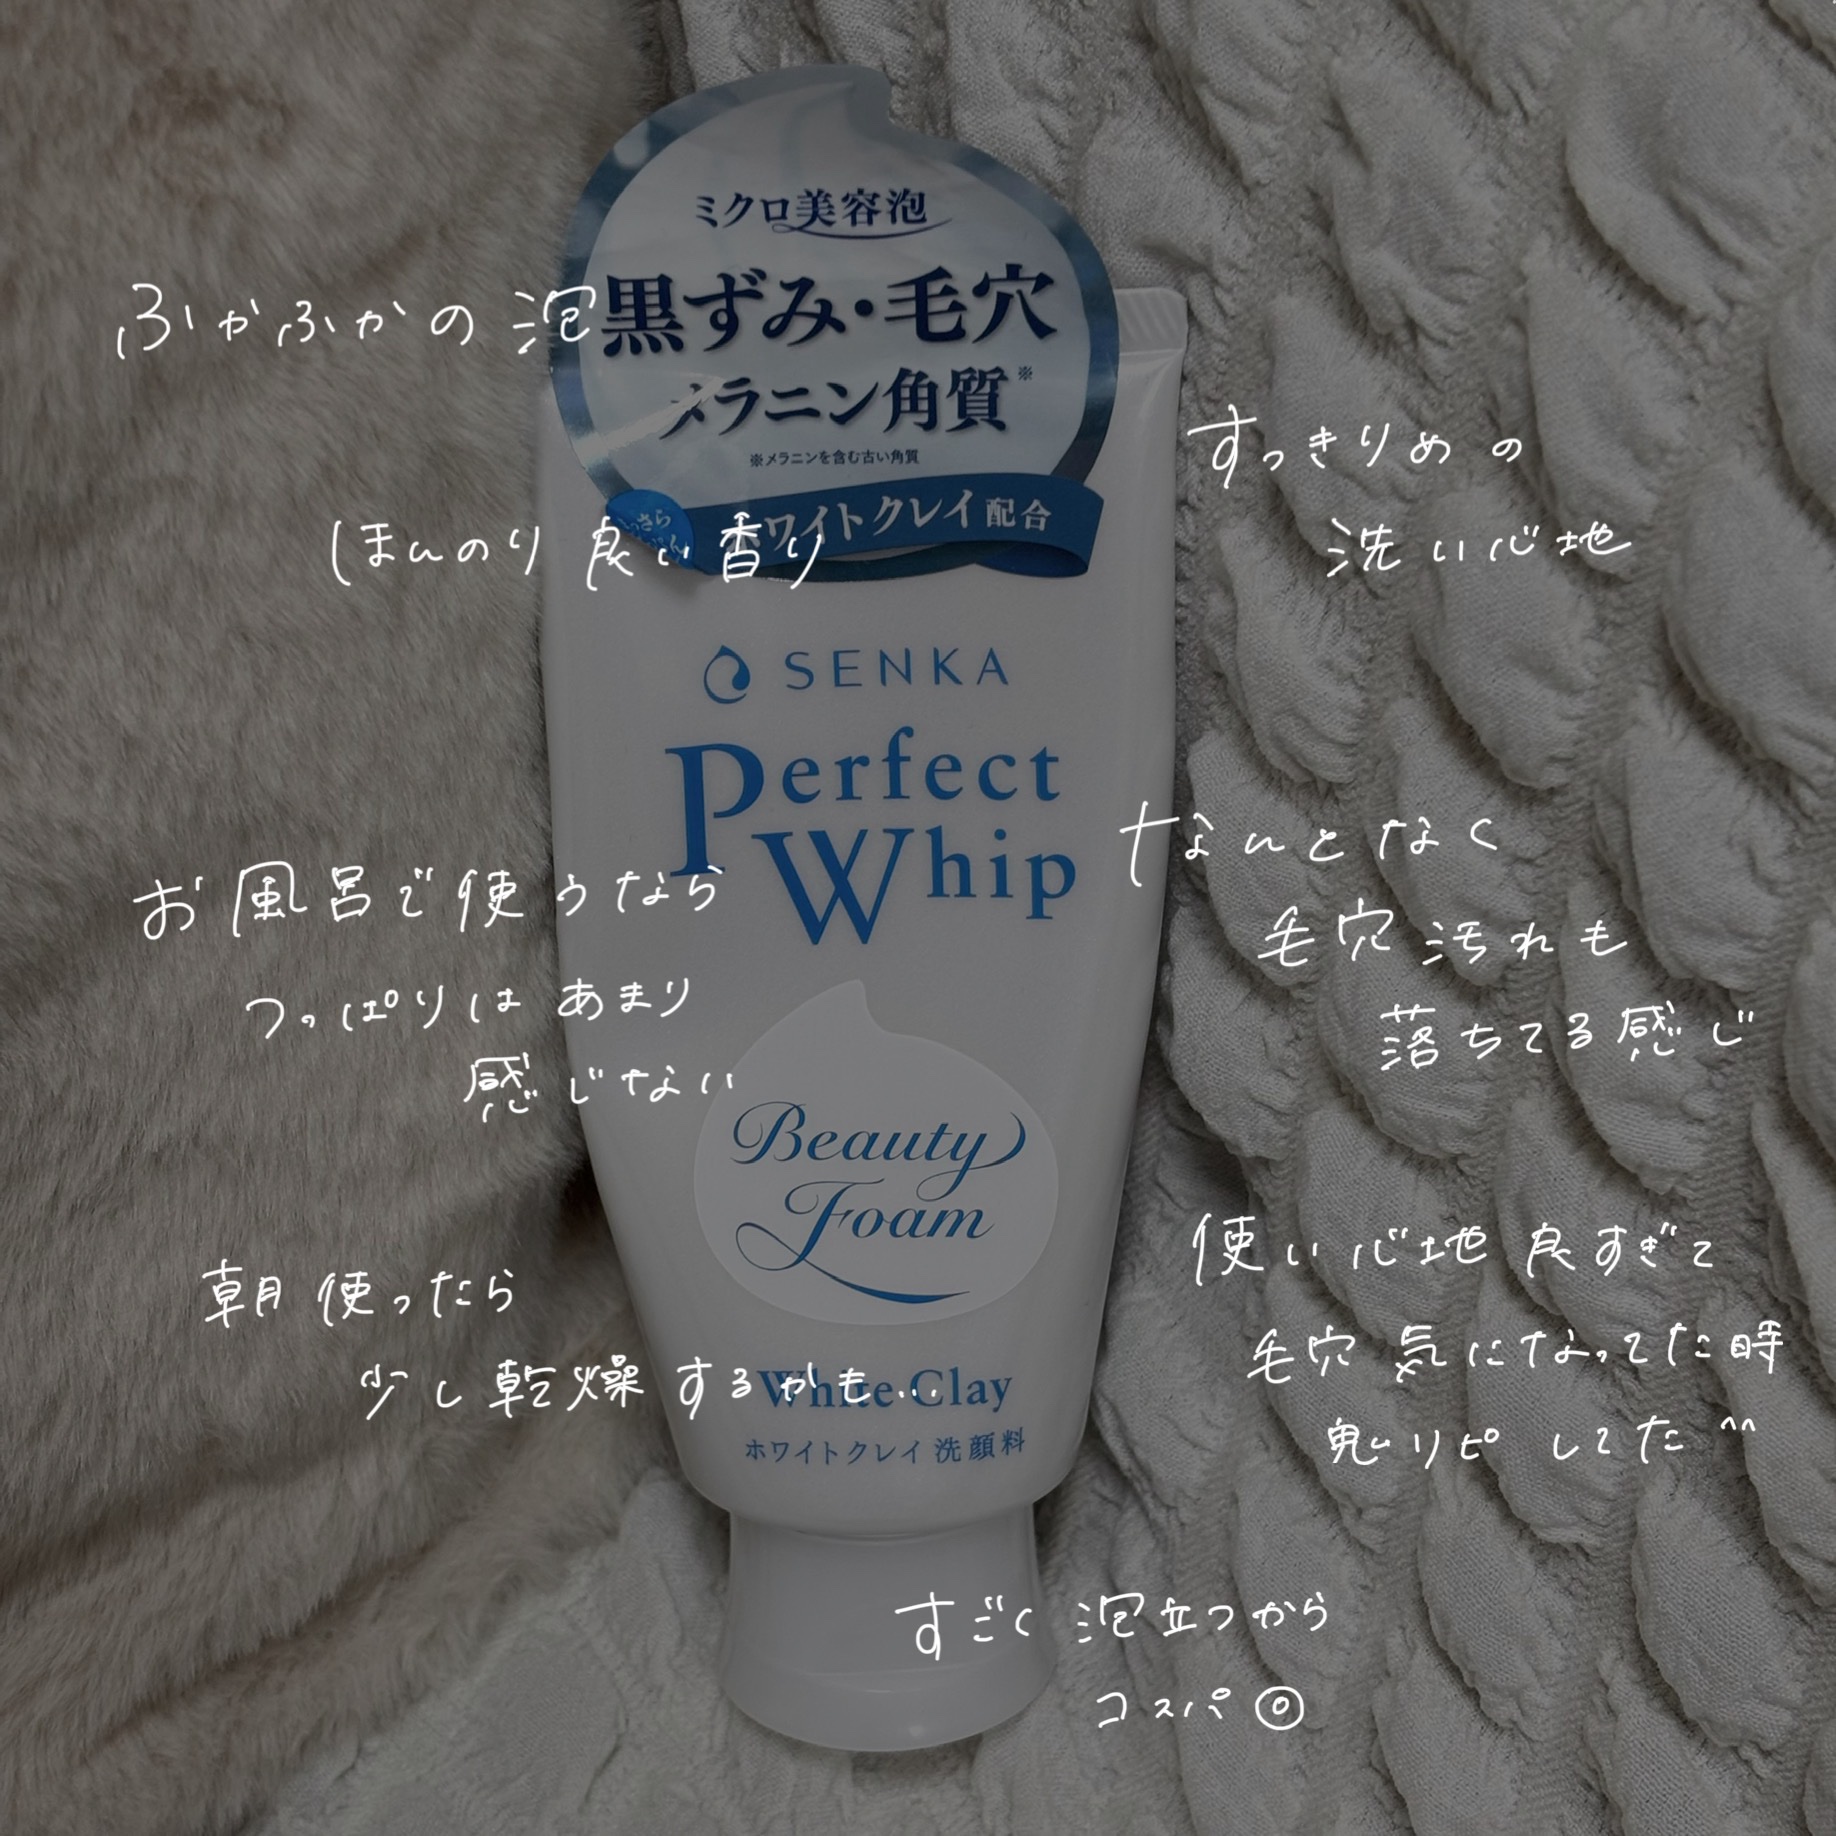 ミクロ美容泡
黒ずみ・毛穴
メラニン角質※
※メラニンを含む古い角質
ホワイトクレイ配合
SENKA
Perfect
Whip
Beauty
Foam
White Clay
ホワイトクレイ 洗顔料
ふかふかの泡
ほんのり良い香り
すっきりめの
洗い心地
お風呂で使うなら
つっぱりはあまり
感じない
なんとなく
毛穴汚れも
落ちてる感じ
朝使ったら
少し乾燥するかも...
使い心地良すぎて
毛穴気になってた時
鬼リピしてた^^
すごく泡立つから
コスパ◎